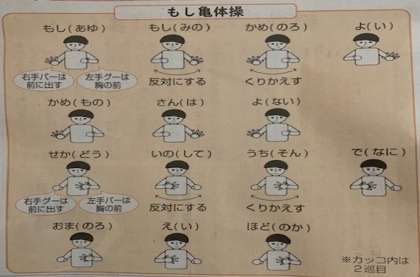 もし亀体操
もし(あゆ) もし(みの) かめ(のろ) よ(い)
右手パーは前に出す 左手グーは胸の前 反対にする くりかえす
かめ(もの) さん(は) よ(ない)
せか(どう) いの(して) うち(そん) で(なに)
右手グーは前に出す 左手パーは胸の前 反対にする くりかえす
おま(のろ) え(い) ほど(のか)
※カッコ内は
2巡目